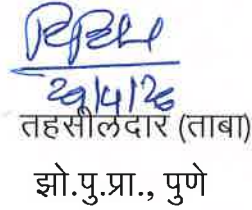 29/4/26
तहसीलदार (ताबा)
झो.पु.प्रा., पुणे